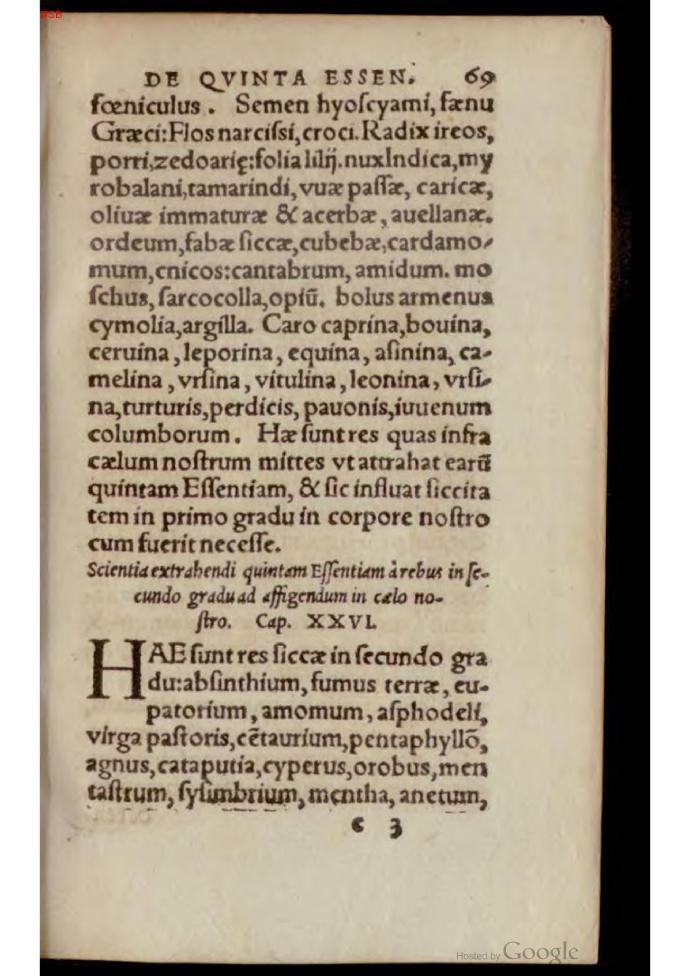 BSB
DE QVINTA ESSEN. 69
fœniculus . Semen hyoſcyami, fænu
Græci: Flos narciſsi, croci. Radix ireos,
porri, zedoarię: folia lilij. nux Indica, my
robalani, tamarindi, vuæ paſſæ, caricæ,
oliuæ immaturæ & acerbæ, auellanæ.
ordeum, fabæ ſiccæ, cubebæ, cardamo-
mum, cnicos: cantabrum, amidum. mo
ſchus, ſarcocolla, opiū. bolus armenus
cymolia, argilla. Caro caprina, bouina,
ceruina, leporina, equina, aſinina, ca-
melina, vrſina, vitulina, leonina, vrſi-
na, turturis, perdicis, pauonis, iuuenum
columborum. Hæ ſunt res quas infra
cælum noſtrum mittes vt attrahat earū
quintam Eſſentiam, & ſic influat ſiccita
tem in primo gradu in corpore noſtro
cum fuerit neceſſe.
Scientia extrahendi quintam Eſſentiam à rebus in ſe-
cundo gradu ad affigendum in cælo no-
ſtro. Cap. XXVI.
HAE ſunt res ſiccæ in ſecundo gra
du: abſinthium, fumus terræ, eu-
patorium, amomum, aſphodeli,
virga paſtoris, cētaurium, pentaphyllō,
agnus, cataputia, cyperus, orobus, men
taſtrum, ſyſimbrium, mentha, anetum,
c 3
Hosted by Google